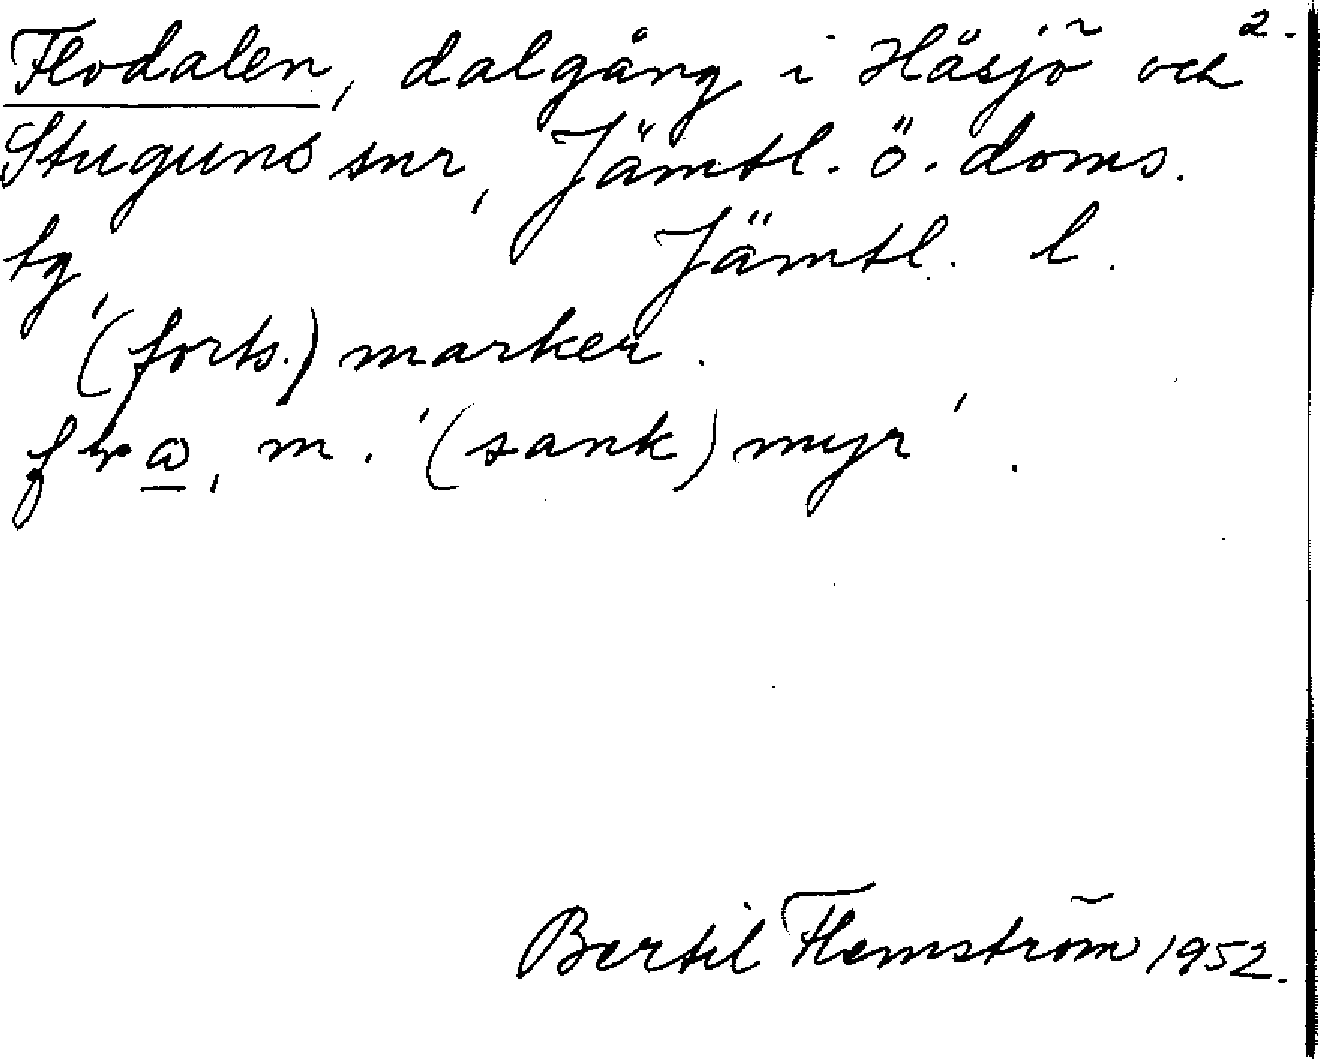 Flodalen, dalgång i Håsjö och 2.
Stuguns snr, Jämtl. ö. doms.
tg, Jämtl. l.
(forts.) marker.
m. '(sank) myr'.
Bertil Flemström 1952.